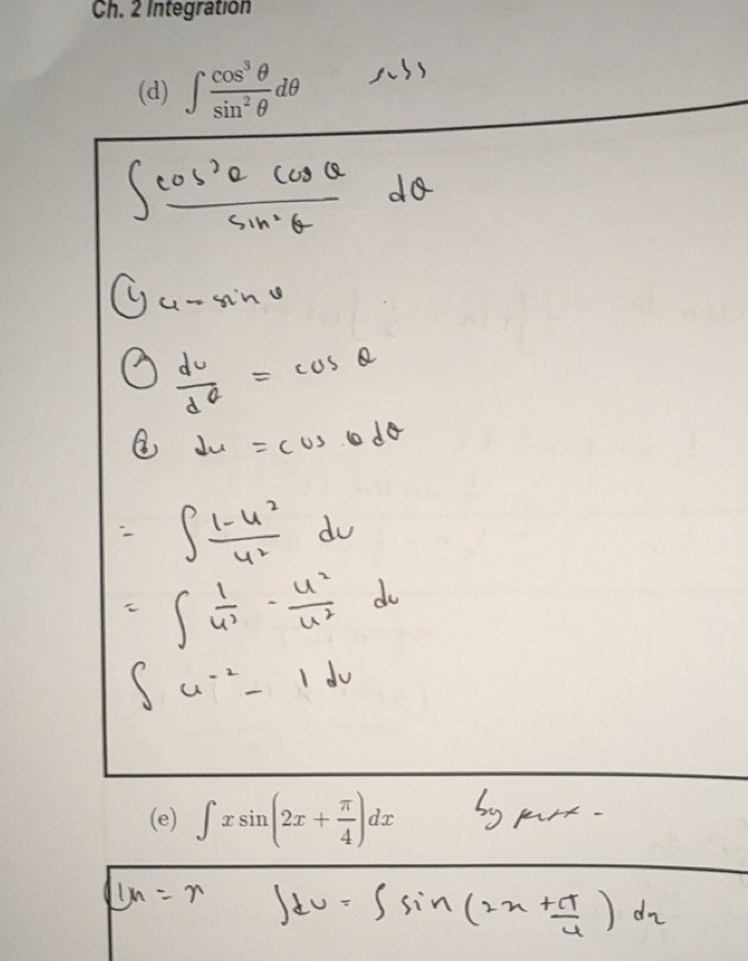 Ch. 2 Integration
(d) ∫ cos³ θ / sin² θ dθ subs
∫ cos²θ cos θ / sin² θ dθ
① u = sin θ
② du/dθ = cos θ
③ du = cos θ dθ
= ∫ 1-u² / u² du
= ∫ 1/u² - u²/u² du
∫ u⁻² - 1 du
(e) ∫ x sin(2x + π/4) dx by part -
u = x ∫dv = ∫ sin (2x + π/4) dx